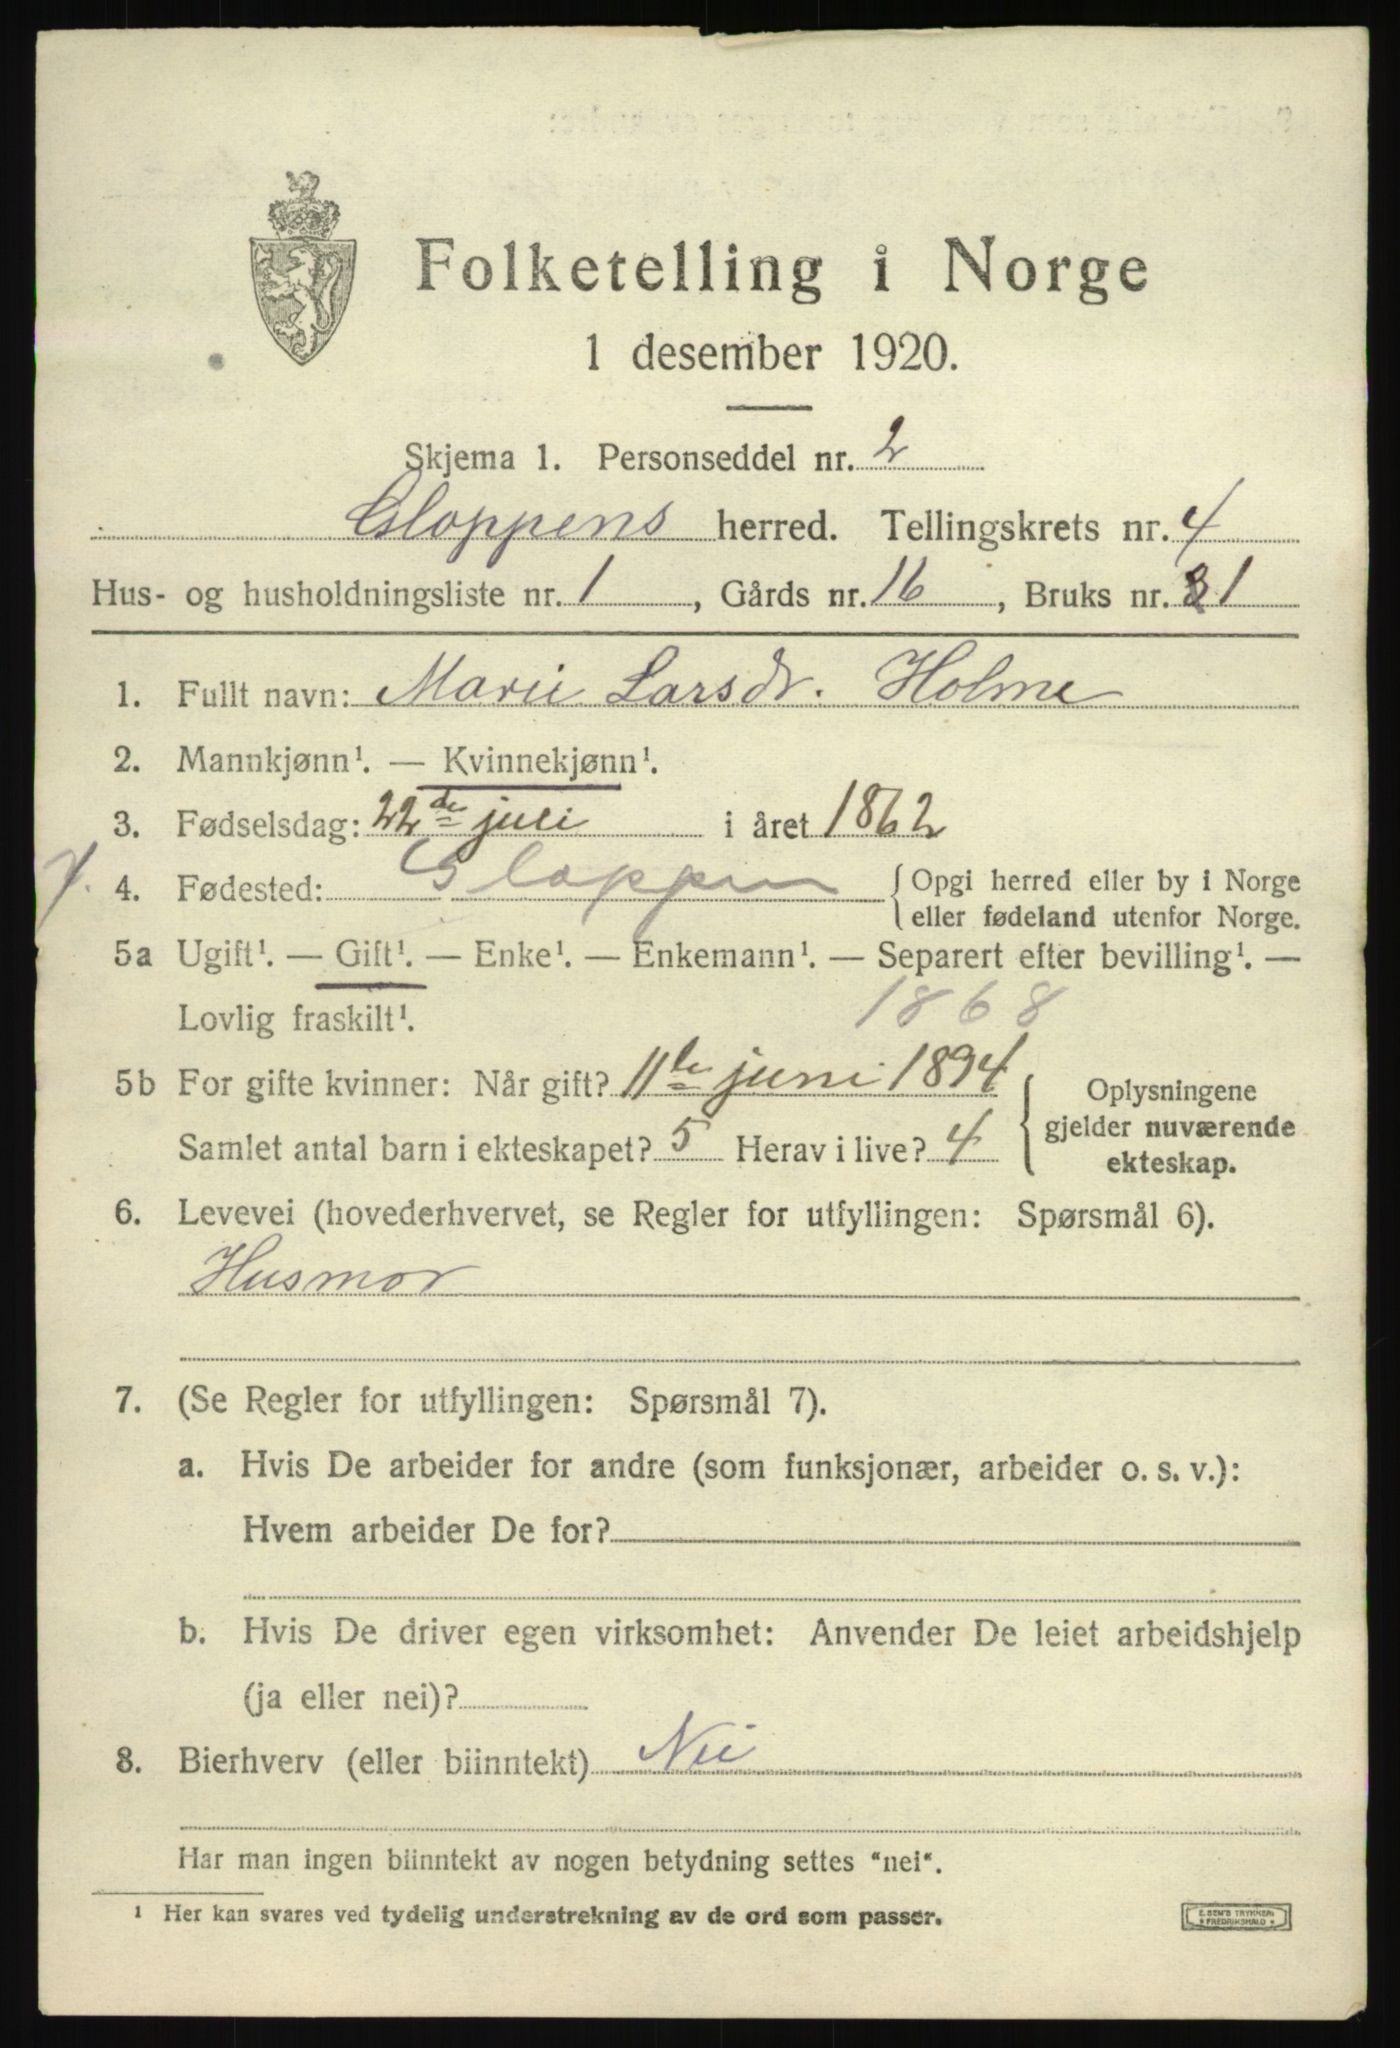 Folketelling i Norge
1 desember 1920.
Skjema 1. Personseddel nr. 2
Gloppens herred. Tellingskrets nr. 4
Hus- og husholdningsliste nr. 1, Gårds nr. 16, Bruks nr. 1
1. Fullt navn: Marie Larsdr. Holme
2. Mannkjønn¹. — Kvinnekjønn¹.
3. Fødselsdag: 22de juli i året 1862
4. Fødested: Gloppen { Opgi herred eller by i Norge
eller fødeland utenfor Norge.
5a Ugift¹. — Gift¹. — Enke¹. — Enkemann¹. — Separert efter bevilling¹. —
Lovlig fraskilt¹. 1868
5b For gifte kvinner: Når gift? 11te juni 1894
Samlet antal barn i ekteskapet? 5 Herav i live? 4
} Oplysningene
gjelder nuværende
ekteskap.
6. Levevei (hovederhvervet, se Regler for utfyllingen: Spørsmål 6).
Husmor
7. (Se Regler for utfyllingen: Spørsmål 7).
a. Hvis De arbeider for andre (som funksjonær, arbeider o. s. v.):
Hvem arbeider De for?
b. Hvis De driver egen virksomhet: Anvender De leiet arbeidshjelp
(ja eller nei)?
8. Bierhverv (eller biinntekt) Nei
Har man ingen biinntekt av nogen betydning settes "nei".
¹ Her kan svares ved tydelig understrekning av de ord som passer.
E. SEM'S TRYKKERI
FREDRIKSHALD